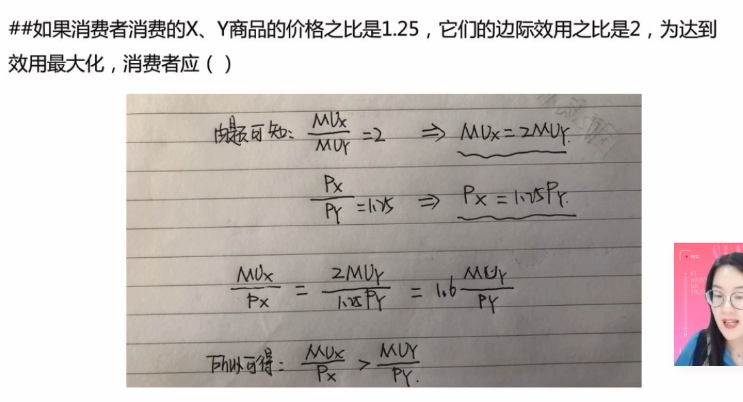 ##如果消费者消费的X、Y商品的价格之比是1.25，它们的边际效用之比是2，为达到
效用最大化，消费者应（ ）
由题可知： MUx/MUY =2 ⇒ MUx=2MUY.
Px/PY =1.25 ⇒ Px=1.25PY.
MUx/Px = 2MUY/1.25PY = 1.6 MUY/PY
所以可得： MUx/Px > MUY/PY.